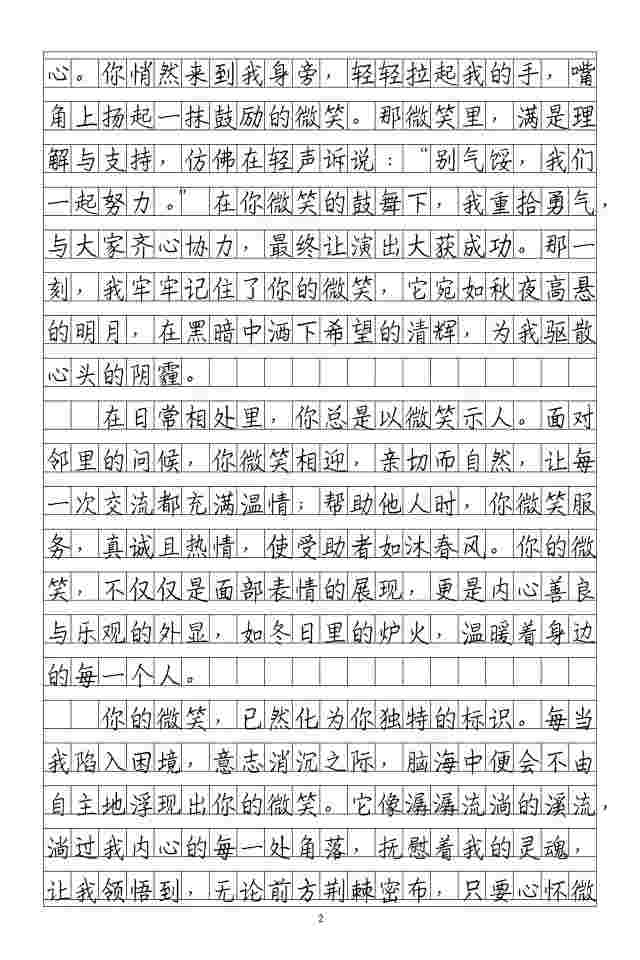 心。你悄然来到我身旁，轻轻拉起我的手，嘴
角上扬起一抹鼓励的微笑。那微笑里，满是理
解与支持，仿佛在轻声诉说：“别气馁，我们
一起努力。”在你微笑的鼓舞下，我重拾勇气，
与大家齐心协力，最终让演出大获成功。那一
刻，我牢牢记住了你的微笑，它宛如秋夜高悬
的明月，在黑暗中洒下希望的清辉，为我驱散
心头的阴霾。
在日常相处里，你总是以微笑示人。面对
邻里的问候，你微笑相迎，亲切而自然，让每
一次交流都充满温情；帮助他人时，你微笑服
务，真诚且热情，使受助者如沐春风。你的微
笑，不仅仅是面部表情的展现，更是内心善良
与乐观的外显，如冬日里的炉火，温暖着身边
的每一个人。
你的微笑，已然化为你独特的标识。每当
我陷入困境，意志消沉之际，脑海中便会不由
自主地浮现出你的微笑。它像潺潺流淌的溪流，
淌过我内心的每一处角落，抚慰着我的灵魂，
让我领悟到，无论前方荆棘密布，只要心怀微
2